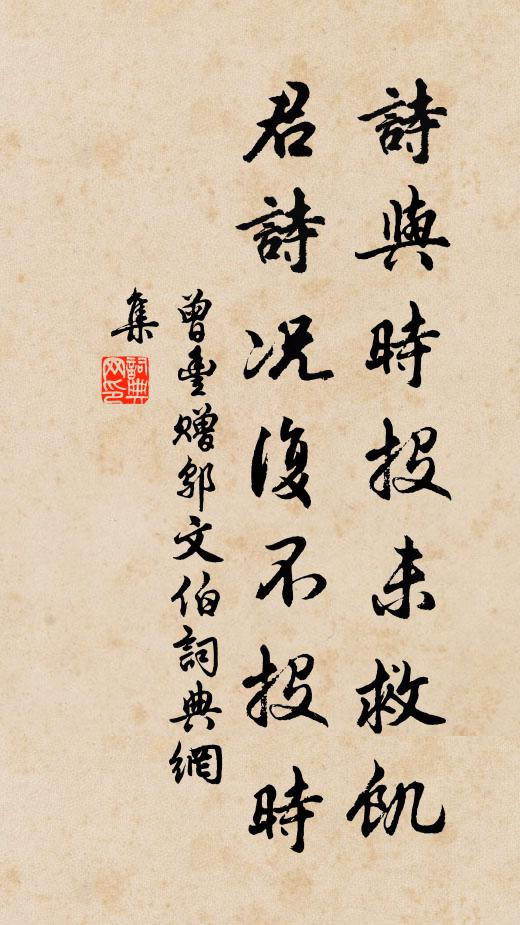 詩與時投未救飢
君詩况復不投時
曾豊贈鄔文伯詞典網
集
詞典
网印